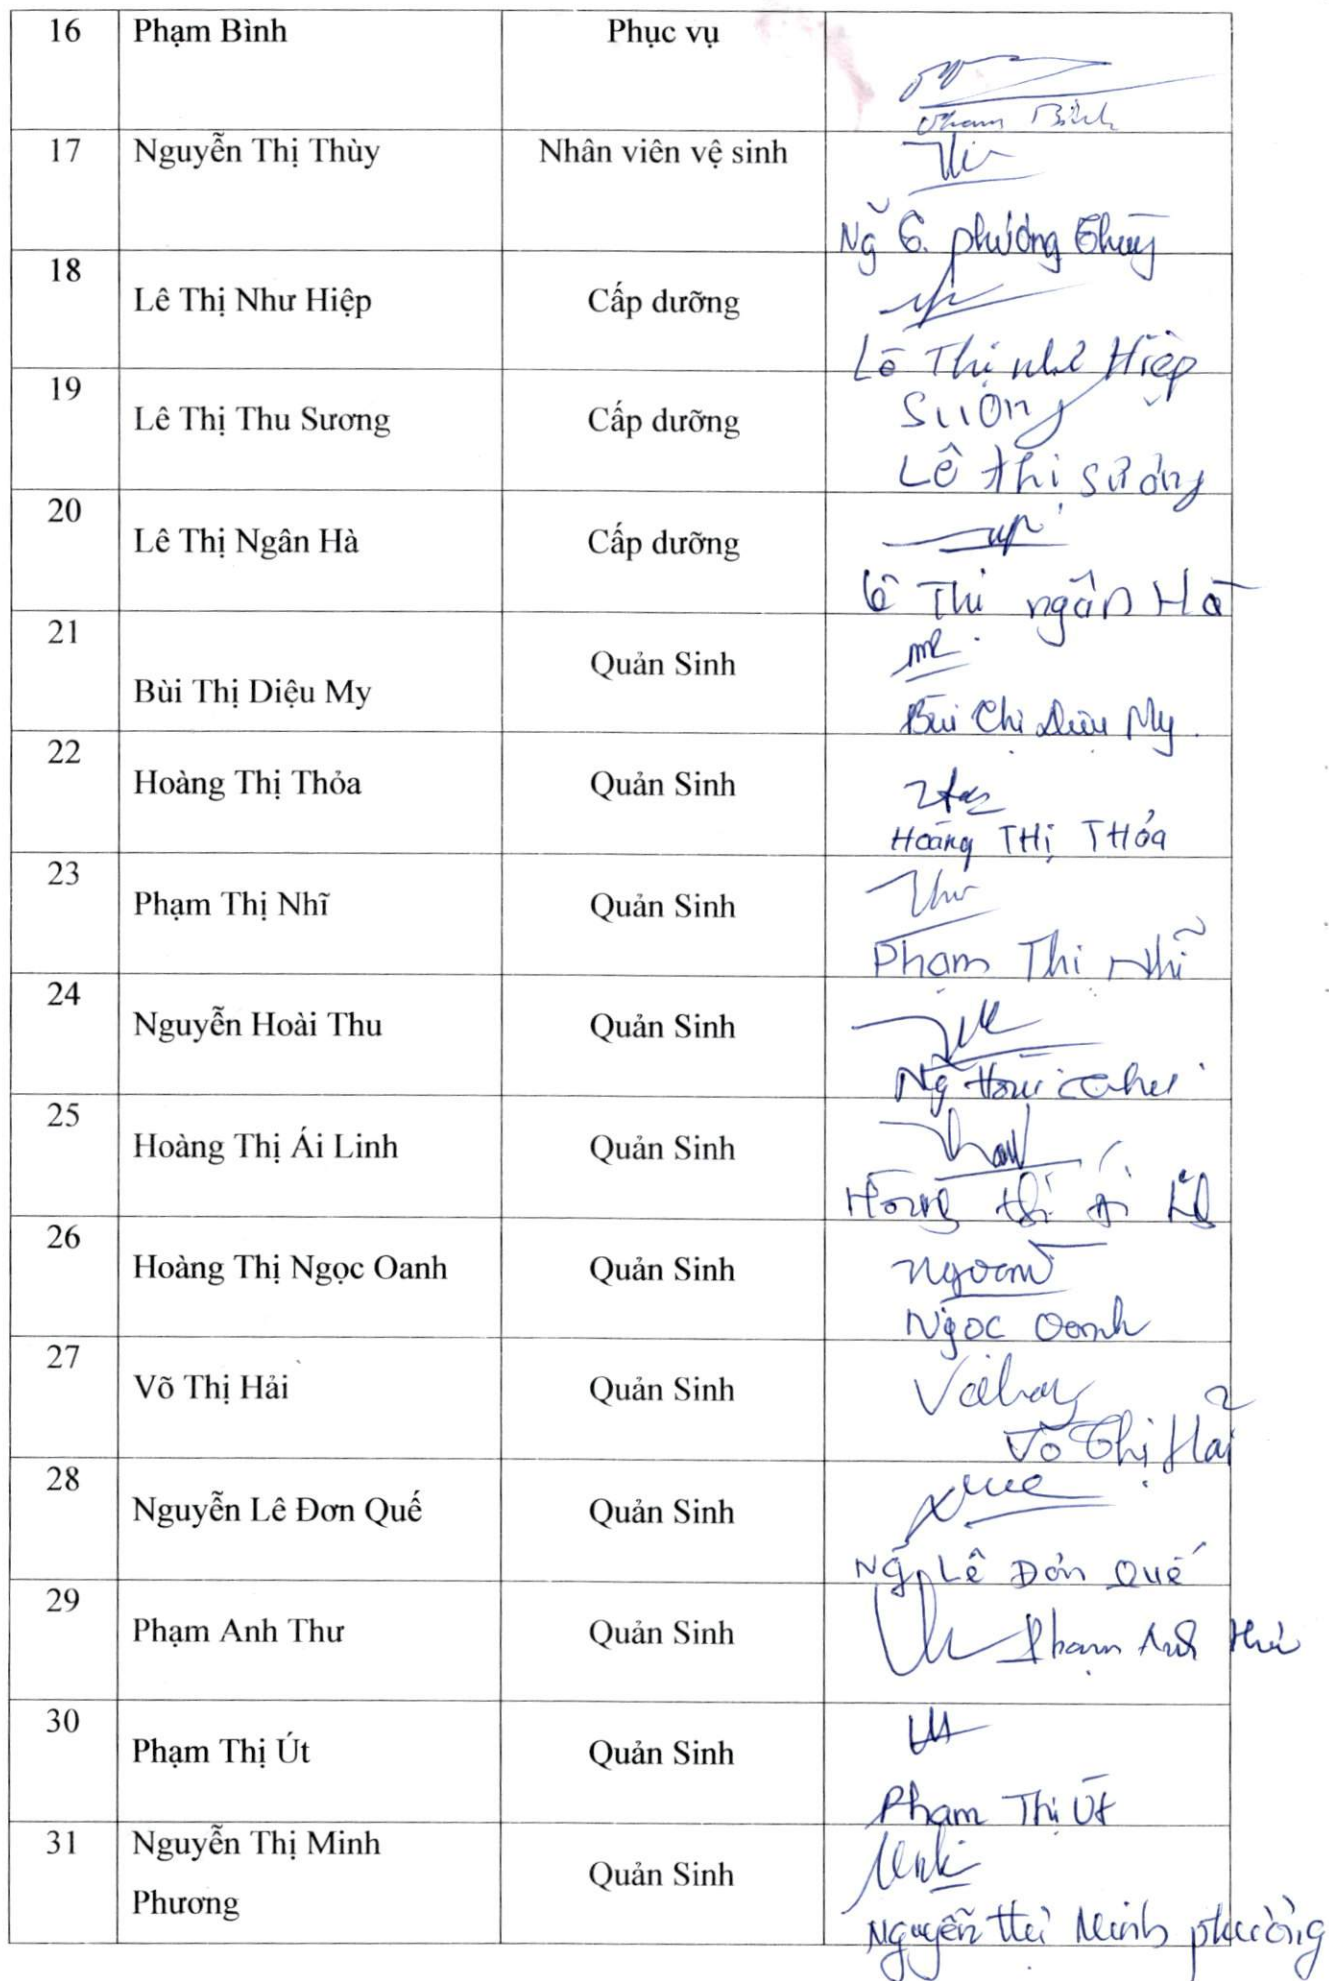 16 Phạm Bình Phục vụ
Phạm Bình
17 Nguyễn Thị Thùy Nhân viên vệ sinh
Ng̃ T. Phương Thùy
18
Lê Thị Như Hiệp Cấp dưỡng
Lê Thị Như Hiệp
19
Lê Thị Thu Sương Cấp dưỡng
Sương
Lê Thị Sương
20
Lê Thị Ngân Hà Cấp dưỡng
Lê Thị Ngân Hà
21
Quản Sinh
Bùi Thị Diệu My
Bùi Thị Diệu My
22
Hoàng Thị Thỏa Quản Sinh
Hoàng THị THỏa
23
Phạm Thị Nhĩ Quản Sinh
Phạm Thị Nhĩ
24
Nguyễn Hoài Thu Quản Sinh
Ng̃ Hoài Thu
25
Hoàng Thị Ái Linh Quản Sinh
Hoàng Thị Ái
26
Hoàng Thị Ngọc Oanh Quản Sinh
Ngọc Oanh
27
Võ Thị Hải Quản Sinh
Võ Thị Hải
28
Nguyễn Lê Đơn Quế Quản Sinh
Ng̃ Lê Đơn Quế
29
Phạm Anh Thư Quản Sinh
Phạm Anh Thư
30
Phạm Thị Út Quản Sinh
Út
Phạm Thị Út
31 Nguyễn Thị Minh
Quản Sinh
Phương
Nguyễn Thị Minh Phương